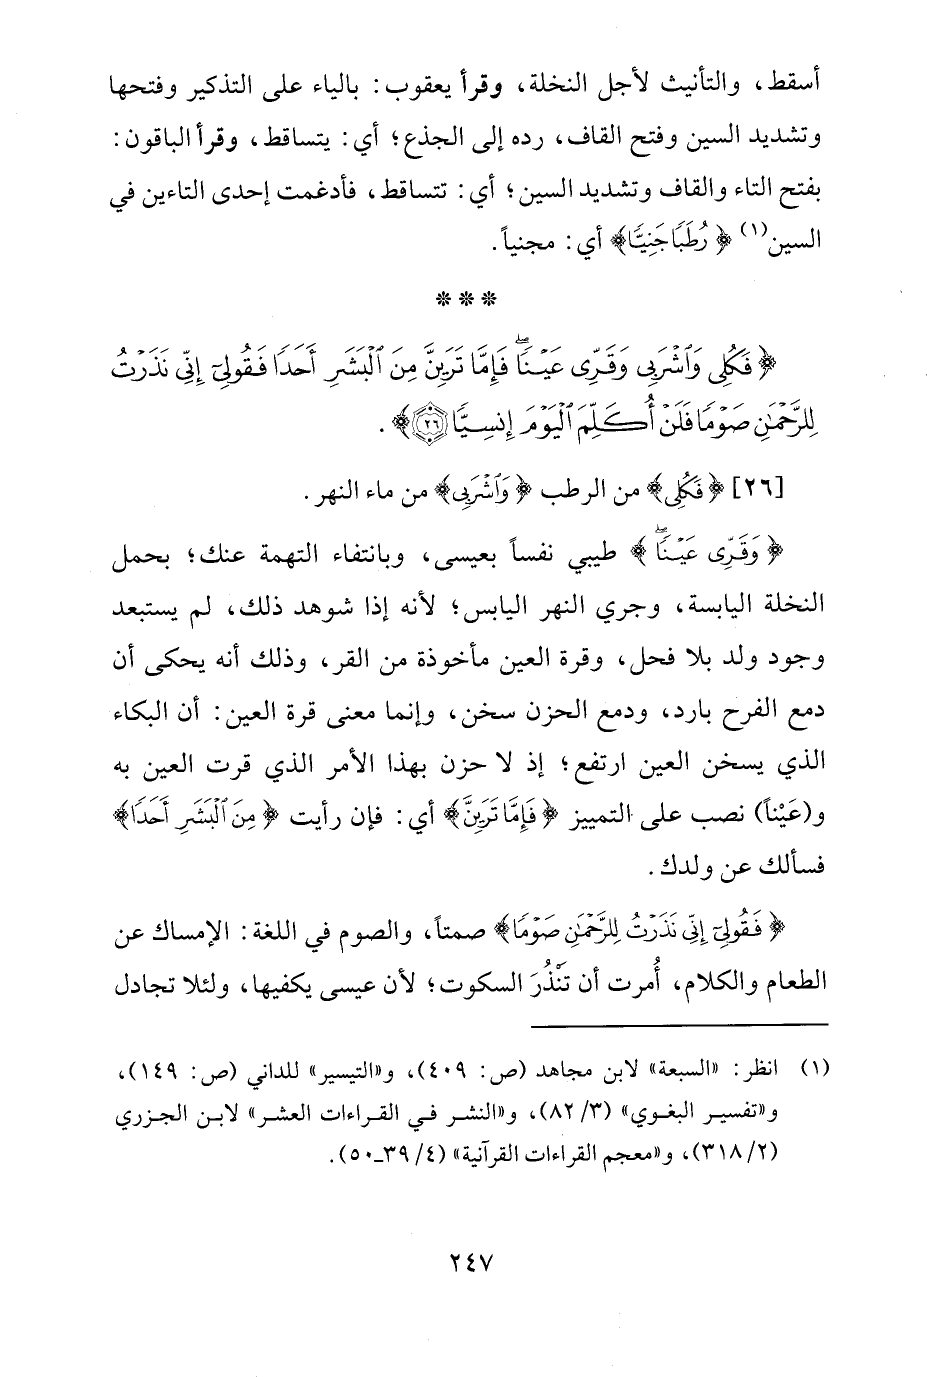 أسقط، والتأنيث لأجل النخلة، وقرأ يعقوب: بالياء على التذكير وفتحها
وتشديد السين وفتح القاف، رده إلى الجذع؛ أي: يتساقط، وقرأ الباقون:
بفتح التاء والقاف وتشديد السين؛ أي: تتساقط، فأدغمت إحدى التاءين في
السين(١) ﴿رُطَبًا جَنِيًّا﴾ أي: مجنياً.
***
﴿فَكُلِي وَٱشْرَبِي وَقَرِّي عَيْنًاۖ فَإِمَّا تَرَيِنَّ مِنَ ٱلْبَشَرِ أَحَدًا فَقُولِيٓ إِنِّي نَذَرْتُ
لِلرَّحْمَٰنِ صَوْمًا فَلَنْ أُكَلِّمَ ٱلْيَوْمَ إِنسِيًّا ٢٦﴾.
[٢٦] ﴿فَكُلِي﴾ من الرطب ﴿وَٱشْرَبِي﴾ من ماء النهر.
﴿وَقَرِّي عَيْنًاۖ﴾ طيبي نفساً بعيسى، وبانتفاء التهمة عنك؛ بحمل
النخلة اليابسة، وجري النهر اليابس؛ لأنه إذا شوهد ذلك، لم يستبعد
وجود ولد بلا فحل، وقرة العين مأخوذة من القر، وذلك أنه يحكى أن
دمع الفرح بارد، ودمع الحزن سخن، وإنما معنى قرة العين: أن البكاء
الذي يسخن العين ارتفع؛ إذ لا حزن بهذا الأمر الذي قرت العين به
و(عَيْناً) نصب على التمييز ﴿فَإِمَّا تَرَيِنَّ﴾ أي: فإن رأيت ﴿مِنَ ٱلْبَشَرِ أَحَدًا﴾
فسألك عن ولدك.
﴿فَقُولِيٓ إِنِّي نَذَرْتُ لِلرَّحْمَٰنِ صَوْمًا﴾ صمتاً، والصوم في اللغة: الإمساك عن
الطعام والكلام، أُمرت أن تَنْذُرَ السكوت؛ لأن عيسى يكفيها، ولئلا تجادل
(١) انظر: «السبعة» لابن مجاهد (ص: ٤٠٩)، و«التيسير» للداني (ص: ١٤٩)،
و«تفسير البغوي» (٣/ ٨٢)، و«النشر في القراءات العشر» لابن الجزري
(٢/ ٣١٨)، و«معجم القراءات القرآنية» (٤/ ٣٩-٥٠).
٢٤٧